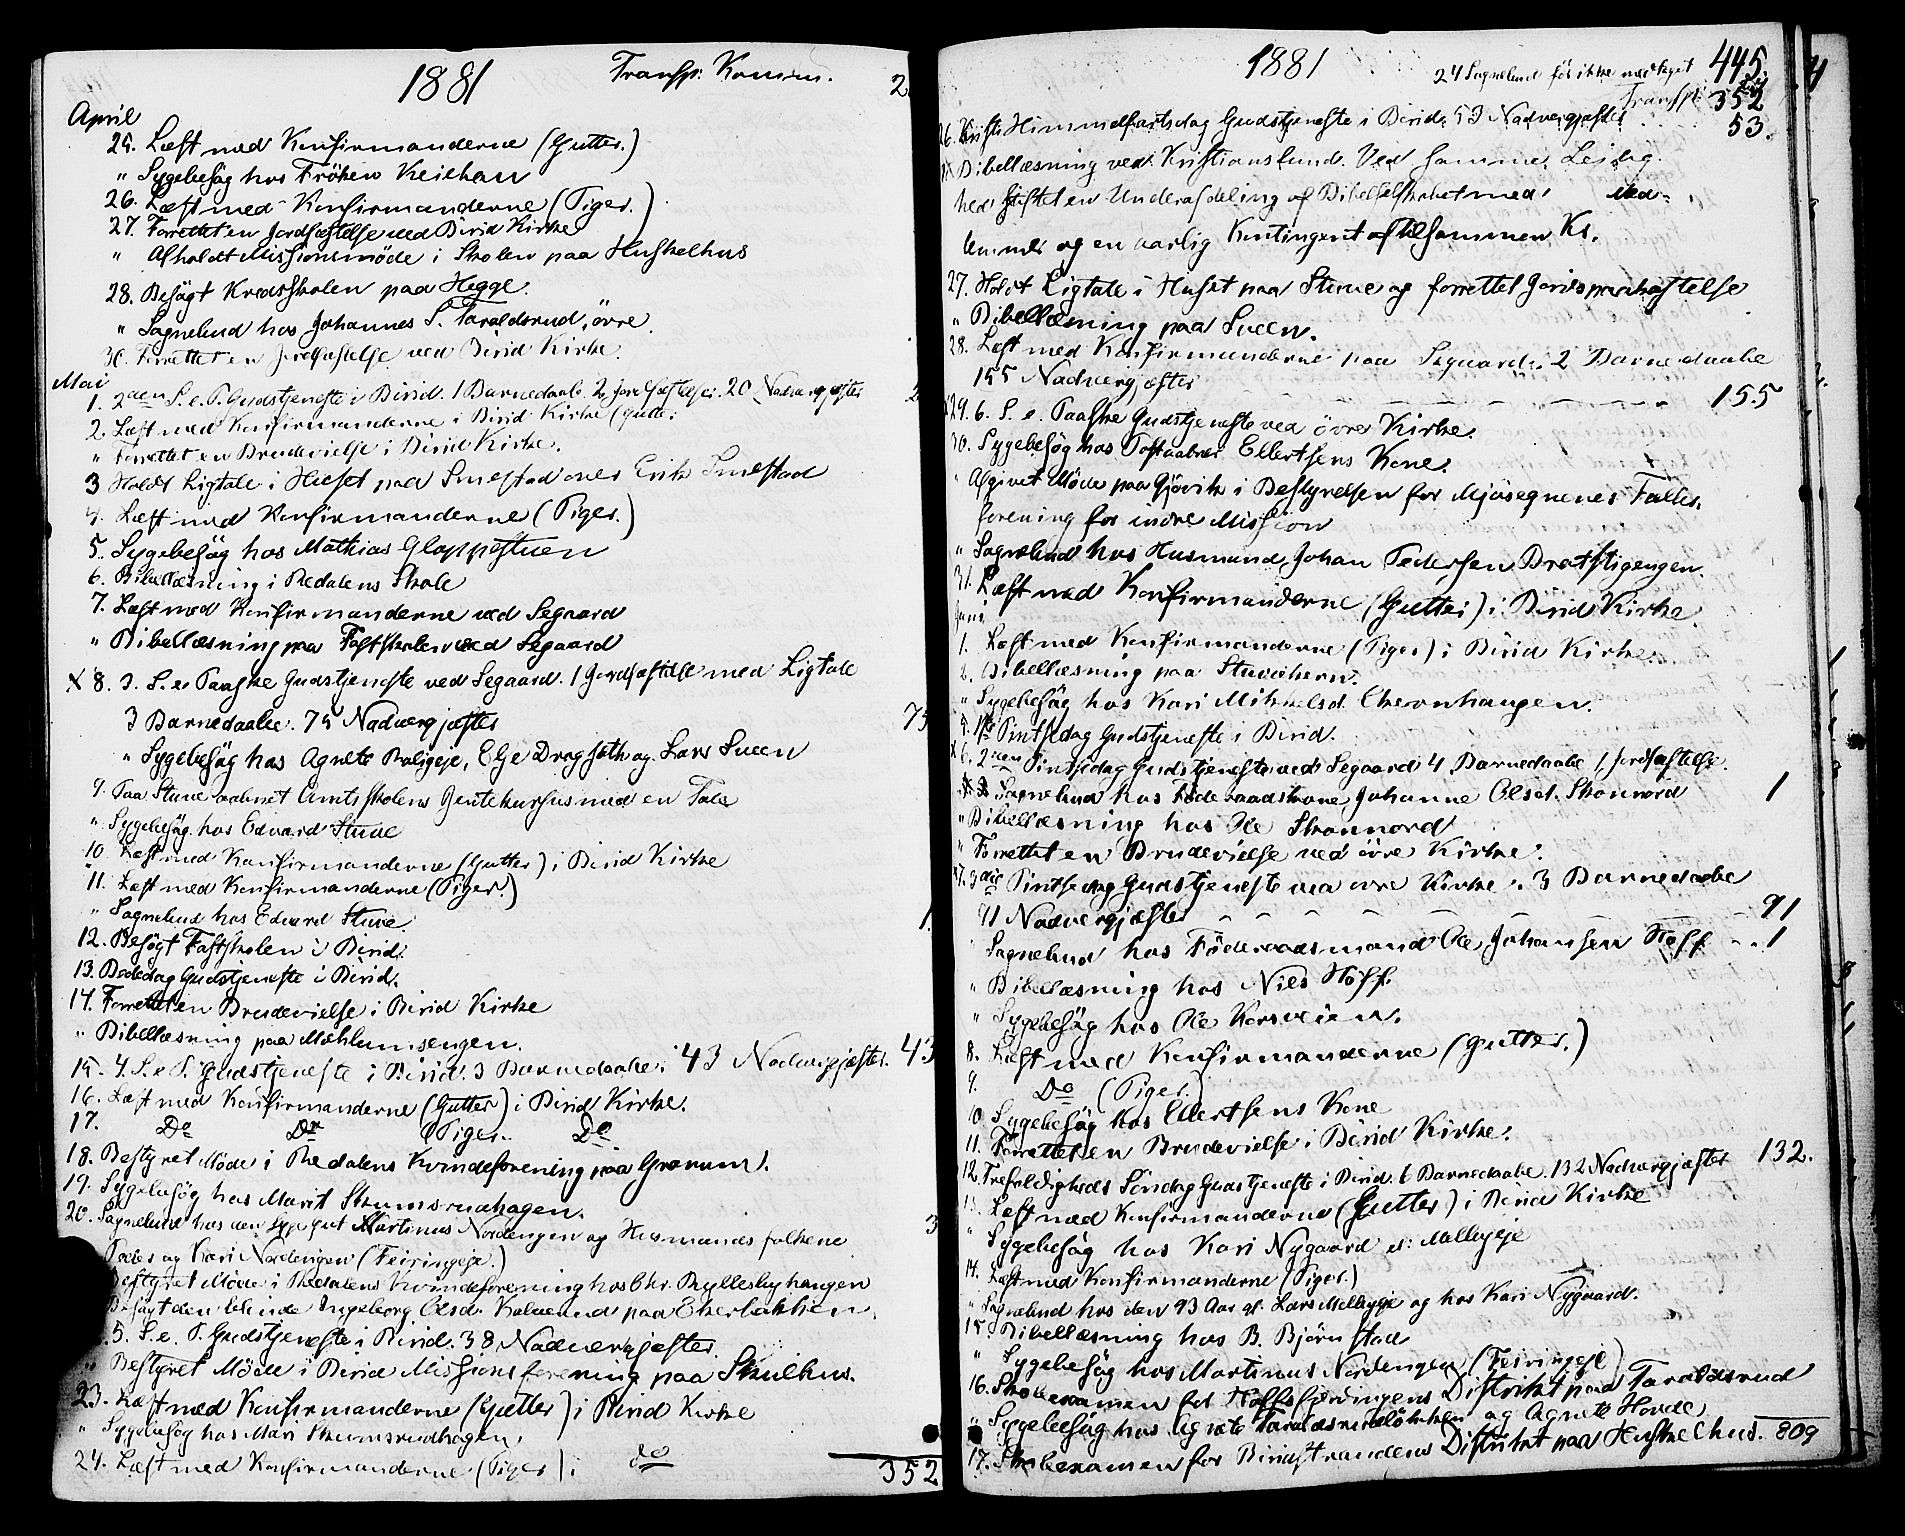 1881
Transp: Komm.
2
April
25. Læst med Konfirmanderne (Gutter.)
" Sygebesög hos Fröken Keilhau
26. Læst med Konfirmanderne (Piger.)
27. Forrettet en Jordfæstelse ved Birid Kirke
" Afholdt Missionsmöde i Skolen paa Huskelhus
28. Besögt Kredsskolen paa Hegge.
" Sognebud hos Johannes S. Taraldsrud, övre.
30. Forrettet en Jordfæstelse ved Birid Kirke.
Mai
1. 2den S. e. P. Gudstjeneste i Birid. 1 Barnedaab. 2 Jordfæstelser. 20 Nadvergjæster 2
2. Læst med Konfirmanderne i Birid Kirke (Gutter)
" Forrettet en Brudevielse i Birid Kirke.
3 Holdt Ligtale i Huset paa Smestad over Erik Smestad
4. Læst med Konfirmanderne (Piger.)
5. Sygebesög hos Mathias Gloppestuen
6. Bibellæsning i Redalens Skole
7. Læst med Konfirmanderne ved Segaard
" Bibellæsning paa Fastskolen ved Segaard
x 8. 3. S. e. Paaske Gudstjeneste ved Segaard. 1 Jordfæstelse med Ligtale
3 Barnedaabe. 75 Nadvergjæster 75
" Sygebesög hos Agnete Baligeje, Elje Dragseth og Lars Sveen
9. Paa Stuve aabnet Amtsskolens Jentekursus med en Tale
" Sygebesög hos Edvard Stuve
10 Læst med Konfirmanderne (Gutter) i Birid Kirke
11. Læst med Konfirmanderne (Piger.)
" Sognebud hos Edvard Stuve 1
12. Besögt Fastskolen i Birid.
13. Bededag Gudstjeneste i Birid.
14. Forrettet en Brudevielse i Birid Kirke
" Bibellæsning paa Mæhlumsengen.
15. 4. S. e. P. Gudstjeneste i Birid. 3 Barnedaabe. 43 Nadvergjæster. 43
16. Læst med Konfirmanderne (Gutter) i Birid Kirke.
17. Do Do (Piger.. Do
18. Bestyret Möde i Redalens Kvindeforening paa Granum.
19. Sygebesög hos Marit Skumsrudhagen.
20. Sognebud hos den syge gut Martinus Nordengen og Husmands folkene 3
Peder og Kari Nordengen (Feiringeje.)
Bestyret Möde i Redalens Kvindeforening hos Chr. Byllesbyhaugen
Besögt den blinde Ingeborg Olsd. Kalverud paa Ekerbakken.
5. S. e. P. Gudstjeneste i Birid. 38 Nadvergjæster.
" Bestyret Möde i Birid Missionsforening paa Skulhus.
23. Læst med Konfirmanderne (Gutter) i Birid Kirke
" Sygebesög hos Mari Skumsrudhagen,
24. Læst med Konfirmanderne (Piger) i do
352
1881
24 Sognebud før ikke medtaget 445
Transp: 352
26. Kristi Himmelfartsdag Gudstjeneste i Birid. 53 Nadvergjæster 53.
Bibellæsning ved Kristianslund. Ved samme Leilig-
hed stiftet en Underafdeling af Bibelselskabet med Med-
lemmer og en aarlig Kontingent af tilsammen Kr.
27. Holdt Ligtale i Huset paa Stuve og forrettet Jords paakastelse
" Bibellæsning paa Sveen.
28. Læst med Konfirmanderne paa Segaard. 2 Barnedaabe
155 Nadvergjæster 155
x29. 6. S. e. Paaske Gudstjeneste ved övre Kirke.
30. Sygebesög hos Postaabner Ellertsens Kone.
" Afgivet Möde paa Gjövik i Bestyrelsen for Mjösegnenes Fælles-
forening for indre Mission
" Sognebud hos Husmand Johan Pedersen Bratstigengen.
31. Læst med Konfirmanderne (Gutter) i Birid Kirke.
Juni
1. Læst med Konfirmanderne (Piger) i Birid Kirke.
2. Bibellæsning paa Stuvekern.
" Sygebesög hos Kari Mikkelsd. Ekernhaugen.
5. 1ste Pintsedag Gudstjeneste i Birid.
x6. 2den Pintsedag Gudstjeneste ved Segaard 4 Barnedaabe 1 Jordfæstelse.
Sognebud hos Föderaadskone, Johanne Olsd. Skonnord 1
" Bibellæsning hos Ole Skonnord
" Forrettet en Brudevielse ved övre Kirke.
x7. 3die Pintsedag Gudstjeneste ved övre Kirke. 3 Barnedaabe
91 Nadvergjæster 91
" Sognebud hos Föderaadsmand Ole Johansen Hoff 1
" Bibellæsning hos Nils Hoff.
" Sygebesög hos Ole Korsveien.
8. Læst med Konfirmanderne (Gutter.)
9. Do (Piger.)
10 Sygebesög hos Ellertsens Kone
11. Forrettet en Brudevielse i Birid Kirke.
12. Trefoldigheds Söndag Gudstjeneste i Birid. 6 Barnedaabe. 132 Nadvergjæster 132.
13. Læst med Konfirmanderne (Gutter) i Birid Kirke
" Sygebesög hos Kari Nygaard el: Melbyeje
14. Læst med Konfirmanderne (Piger.)
" Sognebud hos den 93 Aar gl. Lars Melbyeje og hos Kari Nygaard.
15. Bibellæsning hos B. Björnstad
" Sygebesög hos Martinus Nordengen (Feiringeje)
16. Skoleexamen for Hoffsfjerdingens Distrikt paa Taraldsrud
" Sygebesög hos Agnete Taraldsrudlökken og Agnete Hovde,
17. Skoleexamen for Biristrandens Distrikt paa Huskelhus. 809